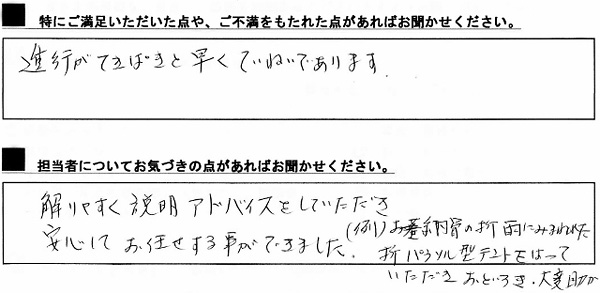 ■ 特にご満足いただいた点や、ご不満をもたれた点があればお聞かせください。
進行がてきぱきと早くていねいであります.
■ 担当者についてお気づきの点があればお聞かせください。
解りやすく説明アドバイスをしていただき
安心して お任せする事ができました.
(例) お墓納骨の折 雨にみまわれた
折 パラソル型テントをはって
いただき おどろき・大変助か